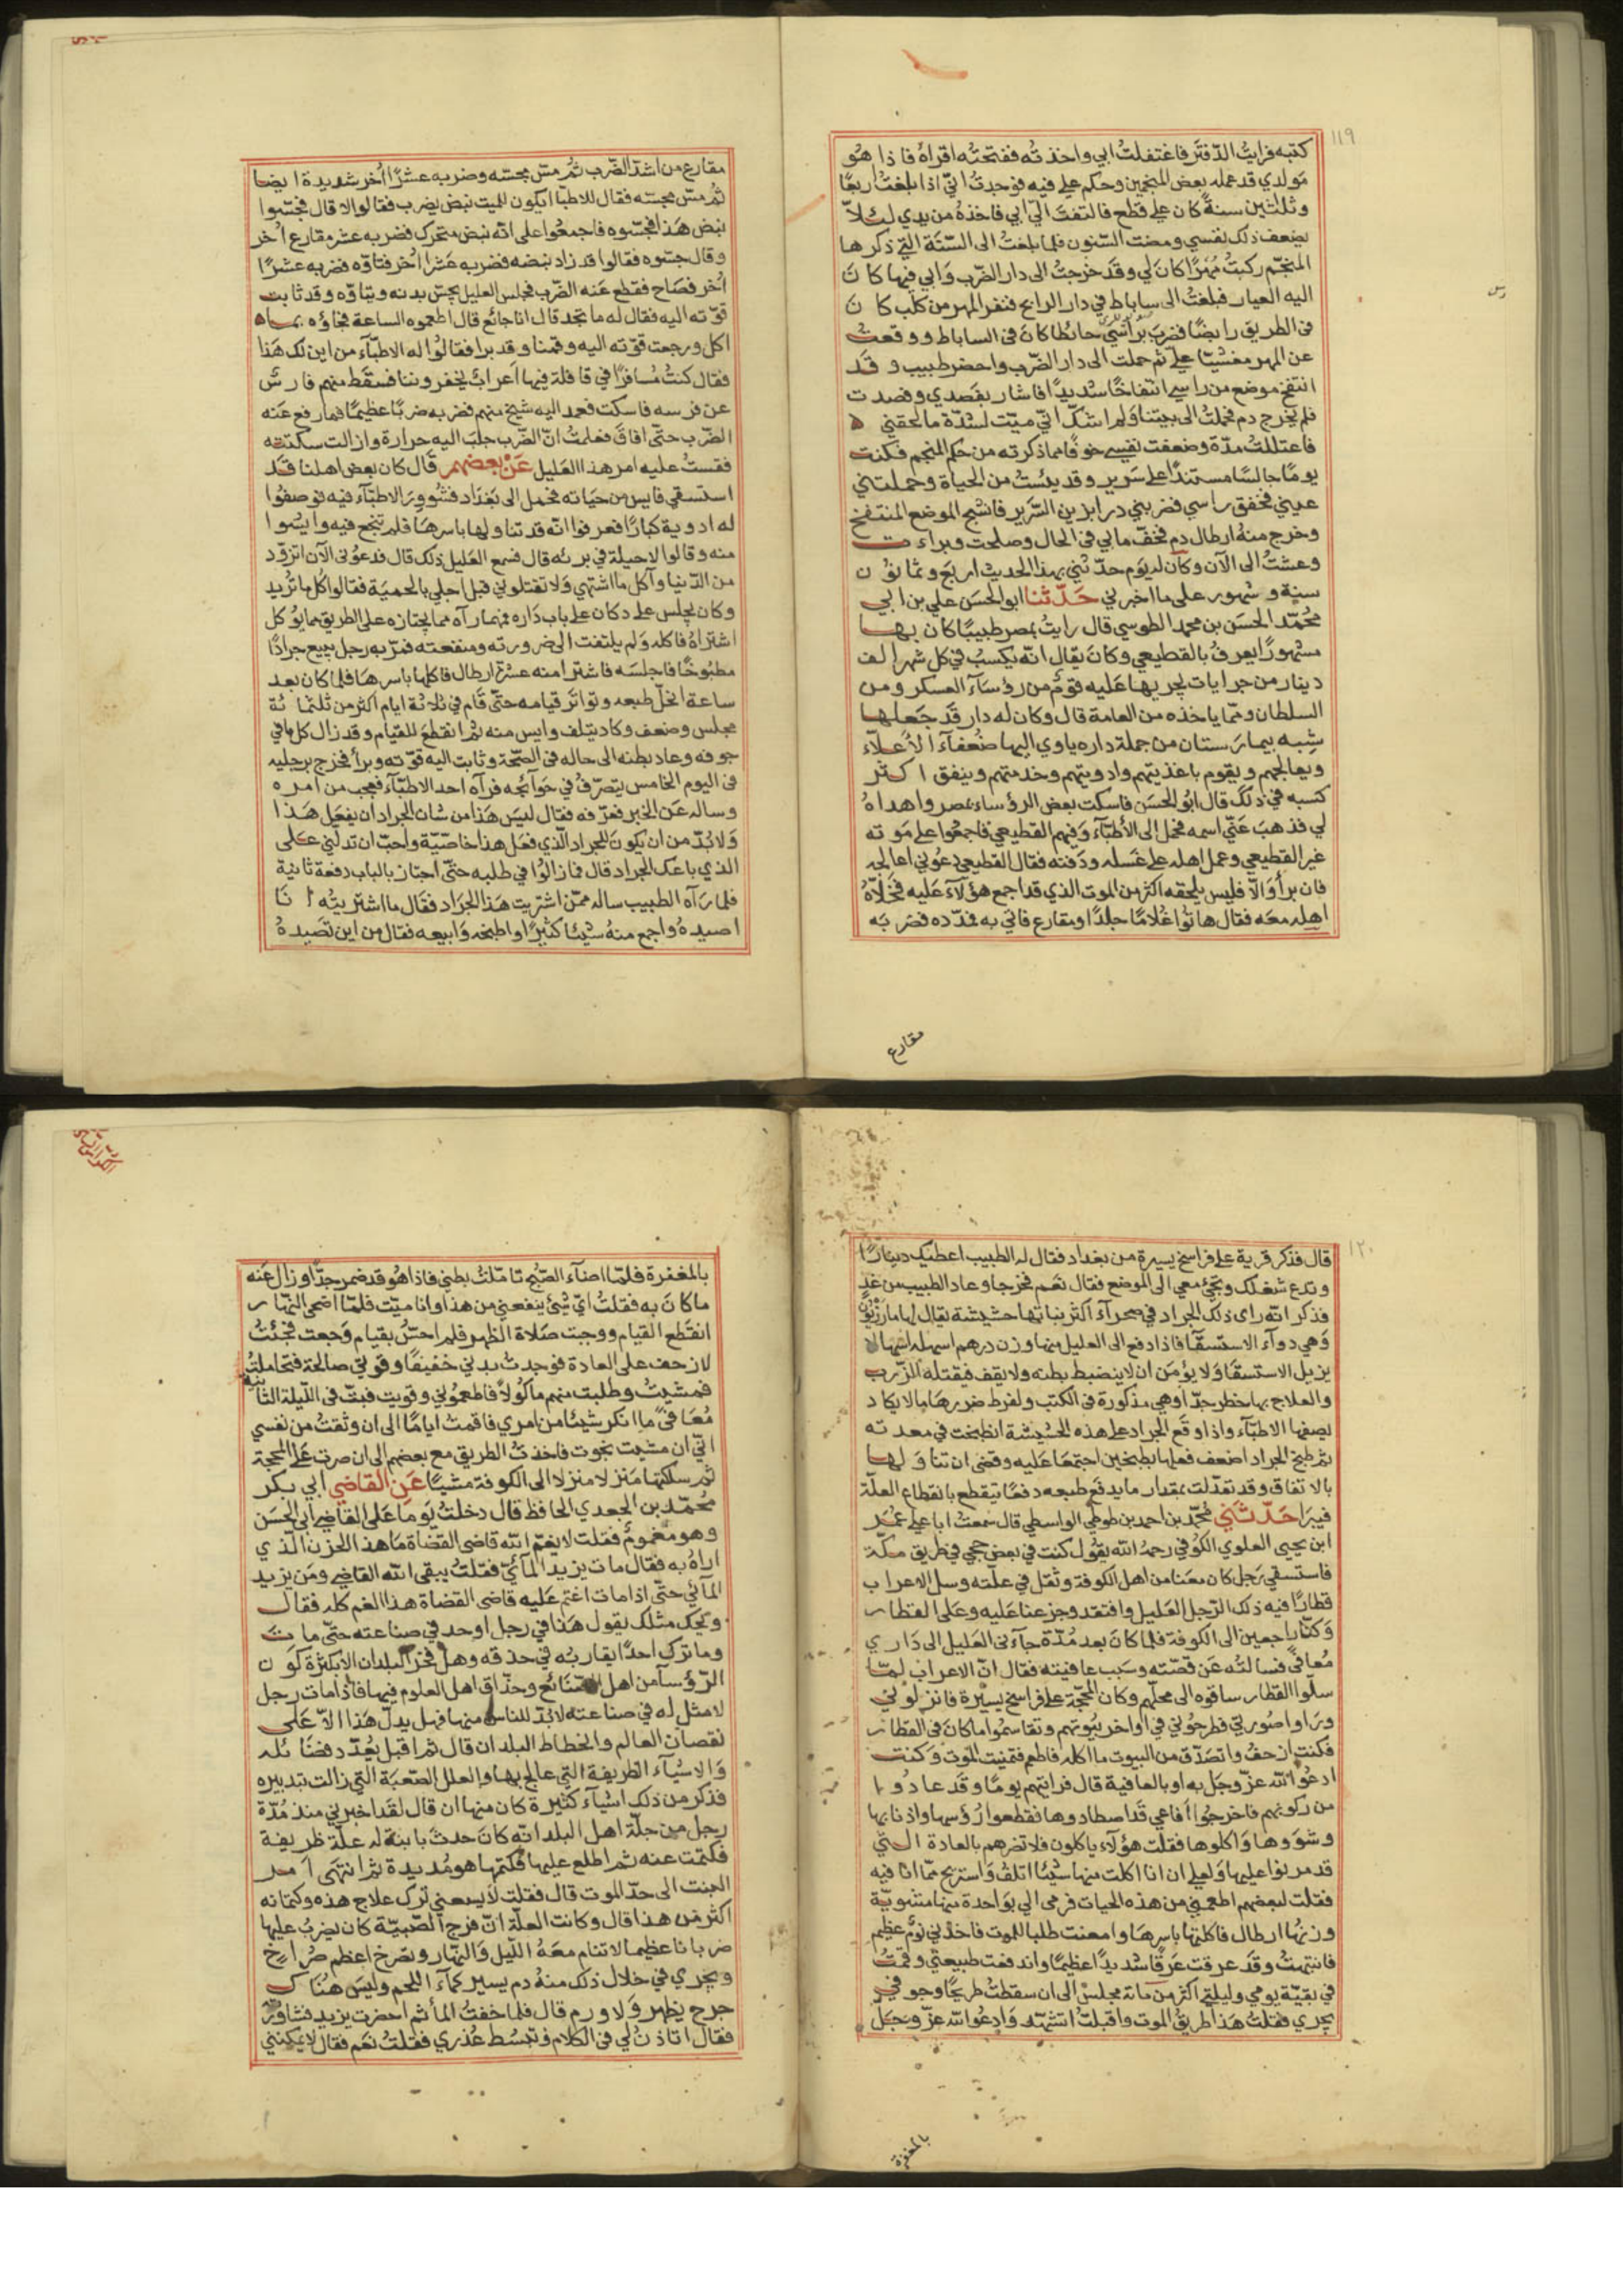 ١١٩
كتبه فرايتُ الدّفتر فاغتفلتُ ابي واخذته ففتحتُه اقراهُ فاذا هُو
مَولدي قد عمله بعض المنجمين وحكم علي فيه فوجدتُ انّي اذا بلغتُ اربعًا
وثلثين سنةً كان علي قطع فالتفتَ اليّ ابي فاخذهُ من يدي لئلاّ
يضعف ذلك نفسي ومضت السّنون فلما بلغتُ الى السّنَة التي ذكرها
المنجّم ركبتُ مُهْرًا كان لي وقد خرجتُ الى دار الضّرب وَابي فيها كانَ
اليه العيار فبلغتُ الى ساباط في دار الرابح فنفر المهر من كلب كانَ
فى الطريق رابضًا فضربَ براسي حائطًا كانَ فى الساباط ووقعتُ
عن المهر مغشيّا عليّ ثم حملت الى دار الضّرب واحضر طبيب وقَد
انتفخ موضع من راسي انتفاخًا شديدًا فاشار بفصدي وفصدت
فلم يَخرج دم فحملتُ الى بيتنا وَلم اشكّ انّي ميّت لشدّة ما لحقني ه
فاعتللتُ مدّة وضعفت نفسي خوفًا مما ذكرته من حكم المنجم فكنت
يومًا جالسًا مستندًا على سَرير وقد يئستُ من الحياة وحملتني
عيني فخفق راسي فضربني درابزين السّرير فانشج الموضع المنتفخ
وخرج منهُ ارطال دم فخفّ ما بي فى الحال وصلحت وبراءت
وعشتُ الى الآن وكان له يوم حدّثني بهذا الحديث اربع وثمانون
سنةٍ وشهور على ما اخبرني حَدّثنا ابو الحسَن علي بن ابي
محُمّد الحسَن بن محمد الطوسي قال رايتُ بمصر طبيبًا كان بها
مشهورًا يعرفُ بالقطيعي وكانَ يقال انّه يكسبُ في كل شهر الف
دينار من جرايات يجريها عَليه قومٌ من رؤسآء العسكر ومن
السلطان وممّا ياخذه من العامة قال وكان له دار قَد جَعلها
شِبه بيمارستان من جملة داره ياوي اليها ضُعفآء الأعلاّء
ويعالجهم ويقوم باغذيتهم وادويتهم وخدمتهم وينفق اكثر
كسبه في ذلك قال ابُو الحسَن فاسكت بعض الرؤساء بمصر واهداهُ
لي فذهبَ عنّي اسمه فحمل إلى الأطبّآء وَفيهم القطيعي فاجمعُوا على موته
غير القطيعي وعمل اهله على غَسله ودَفنه فقال القطيعي دعُوني اعالجه
فان برأ وَالاّ فليس يلحقه اكثر من الموت الذي قد اجمع هؤلاَء عَليه فخَلاّهُ
اهله معَه فقال هاتُوا غُلامًا جلدًا ومقارع فاتي به فمدّده فضرَبَه
مقارع
مقارع من اشدّ الضّرب ثمُّ مسّ مجسّه وضربه عشرًا اُخر شديدة ايضا
ثُمّ مسّ مجسّه فقال للاطبّا ايكون للميت نبض يضرب فقالوا لا قال فجسّوا
نبض هَذا فجسّوه فاجمعُوا على انّه نبض متحرك فضربه عشر مقارع اُخر
وقال جسّوه فقالوا قد زاد نبضه فضربه عَشرا اُخر فتاوّه فضربه عشرًا
اُخر فصَاح فقطع عَنه الضّرب فجلس العليل يجسّ بدنه ويتاوّه وقد ثابت
قوّته اليه فقال له ما تجد قال انا جائع قال اطعموه الساعة فجاؤه بماء
اكل ورجعت قوّته اليه وقمنا وقد برا فقالوُا له الاطبّآء من اين لك هَذا
فقال كنتُ مُسافرًا في قافلة فيها اَعرابٌ يخفروننا فسقَط منهم فارسٌ
عن فرسه فاسكت فعمد اليه شيخ منهم فضربه ضربًا عظيمًا فما رفع عَنه
الضّرب حتّى افاقَ فعلمتُ انّ الضّرب جلبَ اليه حرارة وازالت سكتته
فقستُ عليه امر هذا العَليل عَنْ بعضهم قال كان بعض اهلنا قَد
استسقي فايس من حيَاته فحمل الى بغدَاد فشووِرَ الاطبّآء فيه فوصفُوا
له ادوية كبارًا فعرفوا انّه قد تناولها باسرهَا فلم تنجع فيه وايسُوا
منه وقالوا لا حيلة في برئه قال فسمع العَليل ذلك قال فدعوُنى الآن اتزوّد
من الدّنيا وآكل ما اشتهي وَلا تقتلوني قبل اجلي بالحميَة فقالوا كُل ما تُريد
وكان يجلس على دكان على باب دَاره فمهما رآه مما يجتاز به على الطريق مما يؤكل
اشترَاهُ فاكله وَلم يلتفت الى ضرورته ومنفعته فمرّ به رجل يبيع جرادًا
مطبوُخًا فاجلسَه فاشترا منه عشرة ارطال فاكلها باسرهَا فلما كان بعد
ساعة انحلّ طبعه وتواتَر قيامه حتّى قَام في ثلاثة ايام اكثر من ثلثمائة
مجلس وضعف وكاد يتلف وايس منه ثم انقطعَ للقيام وقد زال كل ما في
جوفه وعاد بطنه الى حاله فى الصّحّة وثابت اليه قوّته وبرأ فخرج برجليه
فى اليوم الخامس يتصَرّفُ في حَوَآئجه فرآه احد الاطبّآء فعجب من امره
وساله عَن الخبر فعرّفه فقال ليسَ هَذا من شان الجراد ان يفعَل هَذا
وَلا بُدّ من ان يكونَ للجراد الّذي فعَل هذا خاصّيّة واحبّ ان تدلني عَلى
الذي باعك الجراد قال فما زالوُا في طلبه حتّى اجتاز بالباب دفعة ثانية
فلما رَآه الطبيب ساله ممّن اشتريت هَذا الجرَاد فقَال ما اشتريتُه انَا
اصيدهُ واجمع منهُ شيئًا كثيرًا واطبخه وَابيعه فقال من اين تصيدهُ
١٢٠
قال فذكر قرية على فراسخ يسيرة من بغداد فقال له الطبيب اعطيك دينارًا
وتدع شغلك وتجئ معي الى الموضع فقال نعَم فخرجا وعاد الطبيب من غدٍ
فذكر انّه راى ذلك الجراد في صحرآء اكثر نباتها حشيشة يقال لها مازريُون
وَهي دوآء الاستسقآ فاذا دفع الى العليل منها وزن درهم اسهله اسهالا
يزيل الاستسقَا وَلا يؤمَن ان لا ينضبط بطنه ولا يقف فيقتله الزّرب
والعلاج بها خطر جدًّا وهي مذكورة فى الكتب ولفرط ضررهَا ما لا يكاد
يصفها الاطبّآء واذا وقَع الجراد على هذه الحشيشة انطبخت في معدته
ثم طبخ الجراد اضعف فعلها بطبخين اجتمعَا عَليه وقضى ان تناولها
بالاتفاق وقد تعدّلت بمقدار ما يدفَع طبعه دفعًا يَنقطع بانقطاع العلّة
فيبرَا حَدّثنَي مُحّمد بن احمد بن طوطي الواسطي قال سمعتُ ابا علي عمُر
ابن يحيى العلوي الكوُفي رحمهُ الله يقوُل كنت في بعض حججي في طريق مكّة
فاستسقي رَجل كان معَنا من اهل الكوفة وثقل في علّته وسلّ الاعراب
قطارًا فيه ذلك الرّجل العَليل وافتقد وجزعنا عَليه وعَلى القطار
وَكنّا راجعين الى الكوفة فلما كانَ بعد مُدّة جآءنى العَليل الى دَاري
مُعافًى فسالتُه عَن قصّته وسَبب عافيته فقال انّ الاعراب لمّا
سلّوا القطار ساقوه الى محلّهم وكان المحَجّة على فراسخ يسيرة فانزلوني
ورَاوا صُورتي فطرحوُني في اواخر بُيوتهم وتقاسموُا ما كانَ فى القطار
فكنت ازحفُ واتصَدّق من البيوت ما اكله فاطعم فتمنيت الموت وَكنت
ادعُوا الله عزّ وجَل به او بالعافية قال فرايتهم يومًا وقد عادُوا
من ركوبهم فاخرجوُا افاعي قَد اصطادوها فقطعوا رُؤسها واذنابها
وشوَوها وَاكلوها فقلت هؤلآء ياكلون فلا تضرهم بالعادة التي
قد مرنوا عليها ولعلي ان انا اكلت منها شيئًا اتلفُ وَاستريح ممّا انا فيه
فقلت لبعضهم اطعمني من هذه الحيات فرمى الي بوَاحدة منها مشويّة
وزنها ارطال فاكلتها باسرهَا وامعنت طلبا للموت فاخذني نومٌ عظيم
فانتبهتُ وقَد عرقت عَرقًا شديدًا عظيمًا واندفعت طبيعتي وقمتُ
في بقيّة يومي وليلتي اكثر من مائة مجلسٍ الى ان سقطتُ طريحًا وجوفي
يجري فقلتُ هَذا طريقُ الموت واقبلتُ اتشهّد وَادعُوا الله عزّ وَجَل
بالمغفرة
بالمغفرة فلمّا اضآء الصّبُح تامّلتُ بطنِي فاذا هُو قد ضمر جدًّا وزال عَنه
ما كانَ به فقلتُ ايّ شيْ ينفعنِي من هذا وانا ميّت فلمّا اضحى النّهار
انقَطع القيام ووجبت صَلاة الظّهر فلم احسّ بقيام وَجعت فجئتُ
لازحف على العادة فوجدتُ بدني خفيفًا وقوتي صالحة فتحاملتُ
فمشيتُ وطلبت منهم ماكوُلاً فاطعموُني وقويت فبتّ فى اللّيلة الثانية
مُعَافىً ما انكر شيئًا من امري فاقمتُ ايامًا الى ان وثقتُ من نفسي
انّي ان مشيت نجوت فاخذتُ الطريق مع بعضهم الى ان صرت عَلى المحجة
ثم سلكتها مَنزلا منزلا الى الكوفة مشيًا عَنِ القاضي ابي بكر
محُمّد بن الجعدي الحافظ قال دخلتُ يَومًا عَلى القاضي ابي الحسَن
وهو مَغمومٌ فقلت لا يغمّ الله قاضى القضاة مَا هذا الحزن الذي
اراهُ به فقال مات يزيد المآئيّ فقلتُ يبقي الله القاضي ومَن يزيد
المآئي حتّى اذا مات اغتم عَليه قاضى القضاة هذا الغم كله فقال
ويَحك مثلك يقول هَذا في رجل اوحد في صناعته حتّى مات
وما ترك احدًا يقاربُه في حذقه وهل فخر البلدان الا بكثرة كون
الرّؤسآ من اهل الصّنائع وحذّاق اهل العلوم فيها فاذا مات رجل
لا مثل له في صناعته لا بُدّ للناس منها فهل يدلّ هَذا الاّ عَلى
نقصَان العالم وانحطاط البلدان قال ثم اقبل يُعدّد فضَائله
وَالاشيآء الظريفة التي عالج بها والعلل الصّعبَة التي زالت بتدبيره
فذكر من ذلك اشيآء كثيرة كان منها ان قال لقَد اخبرني منذ مُدّة
رجل من جلّة اهل البلد انّه كانَ حدثَ بابنة له علّة ظريفة
فكتمت عنه ثم اطلع عليها فكتمها هو مُديدة ثم انتهَى امر
البنت الى حدّ الموت قال فقلت لاَ يسعني ترك علاج هذه وكتمانه
اكثر من هذا قال وكانت العلّة انّ فرج الصّبيّة كان يضربُ عليها
ضربانا عظيما لا تنام معَهُ اللّيل وَالنّهار وتصْرخ اعظم صُراخ
ويَجري في خلال ذلك منهُ دم يسير كمآء اللحم وليسَ هُناك
جرح يظهر وَلا ورم قال فلما خفتُ المأثم احضرت يزيد فشاورته
فقال اتاذنُ لي فى الكلام وتبْسُط عُذري فقلتُ نَعم فقال لا يمكنني